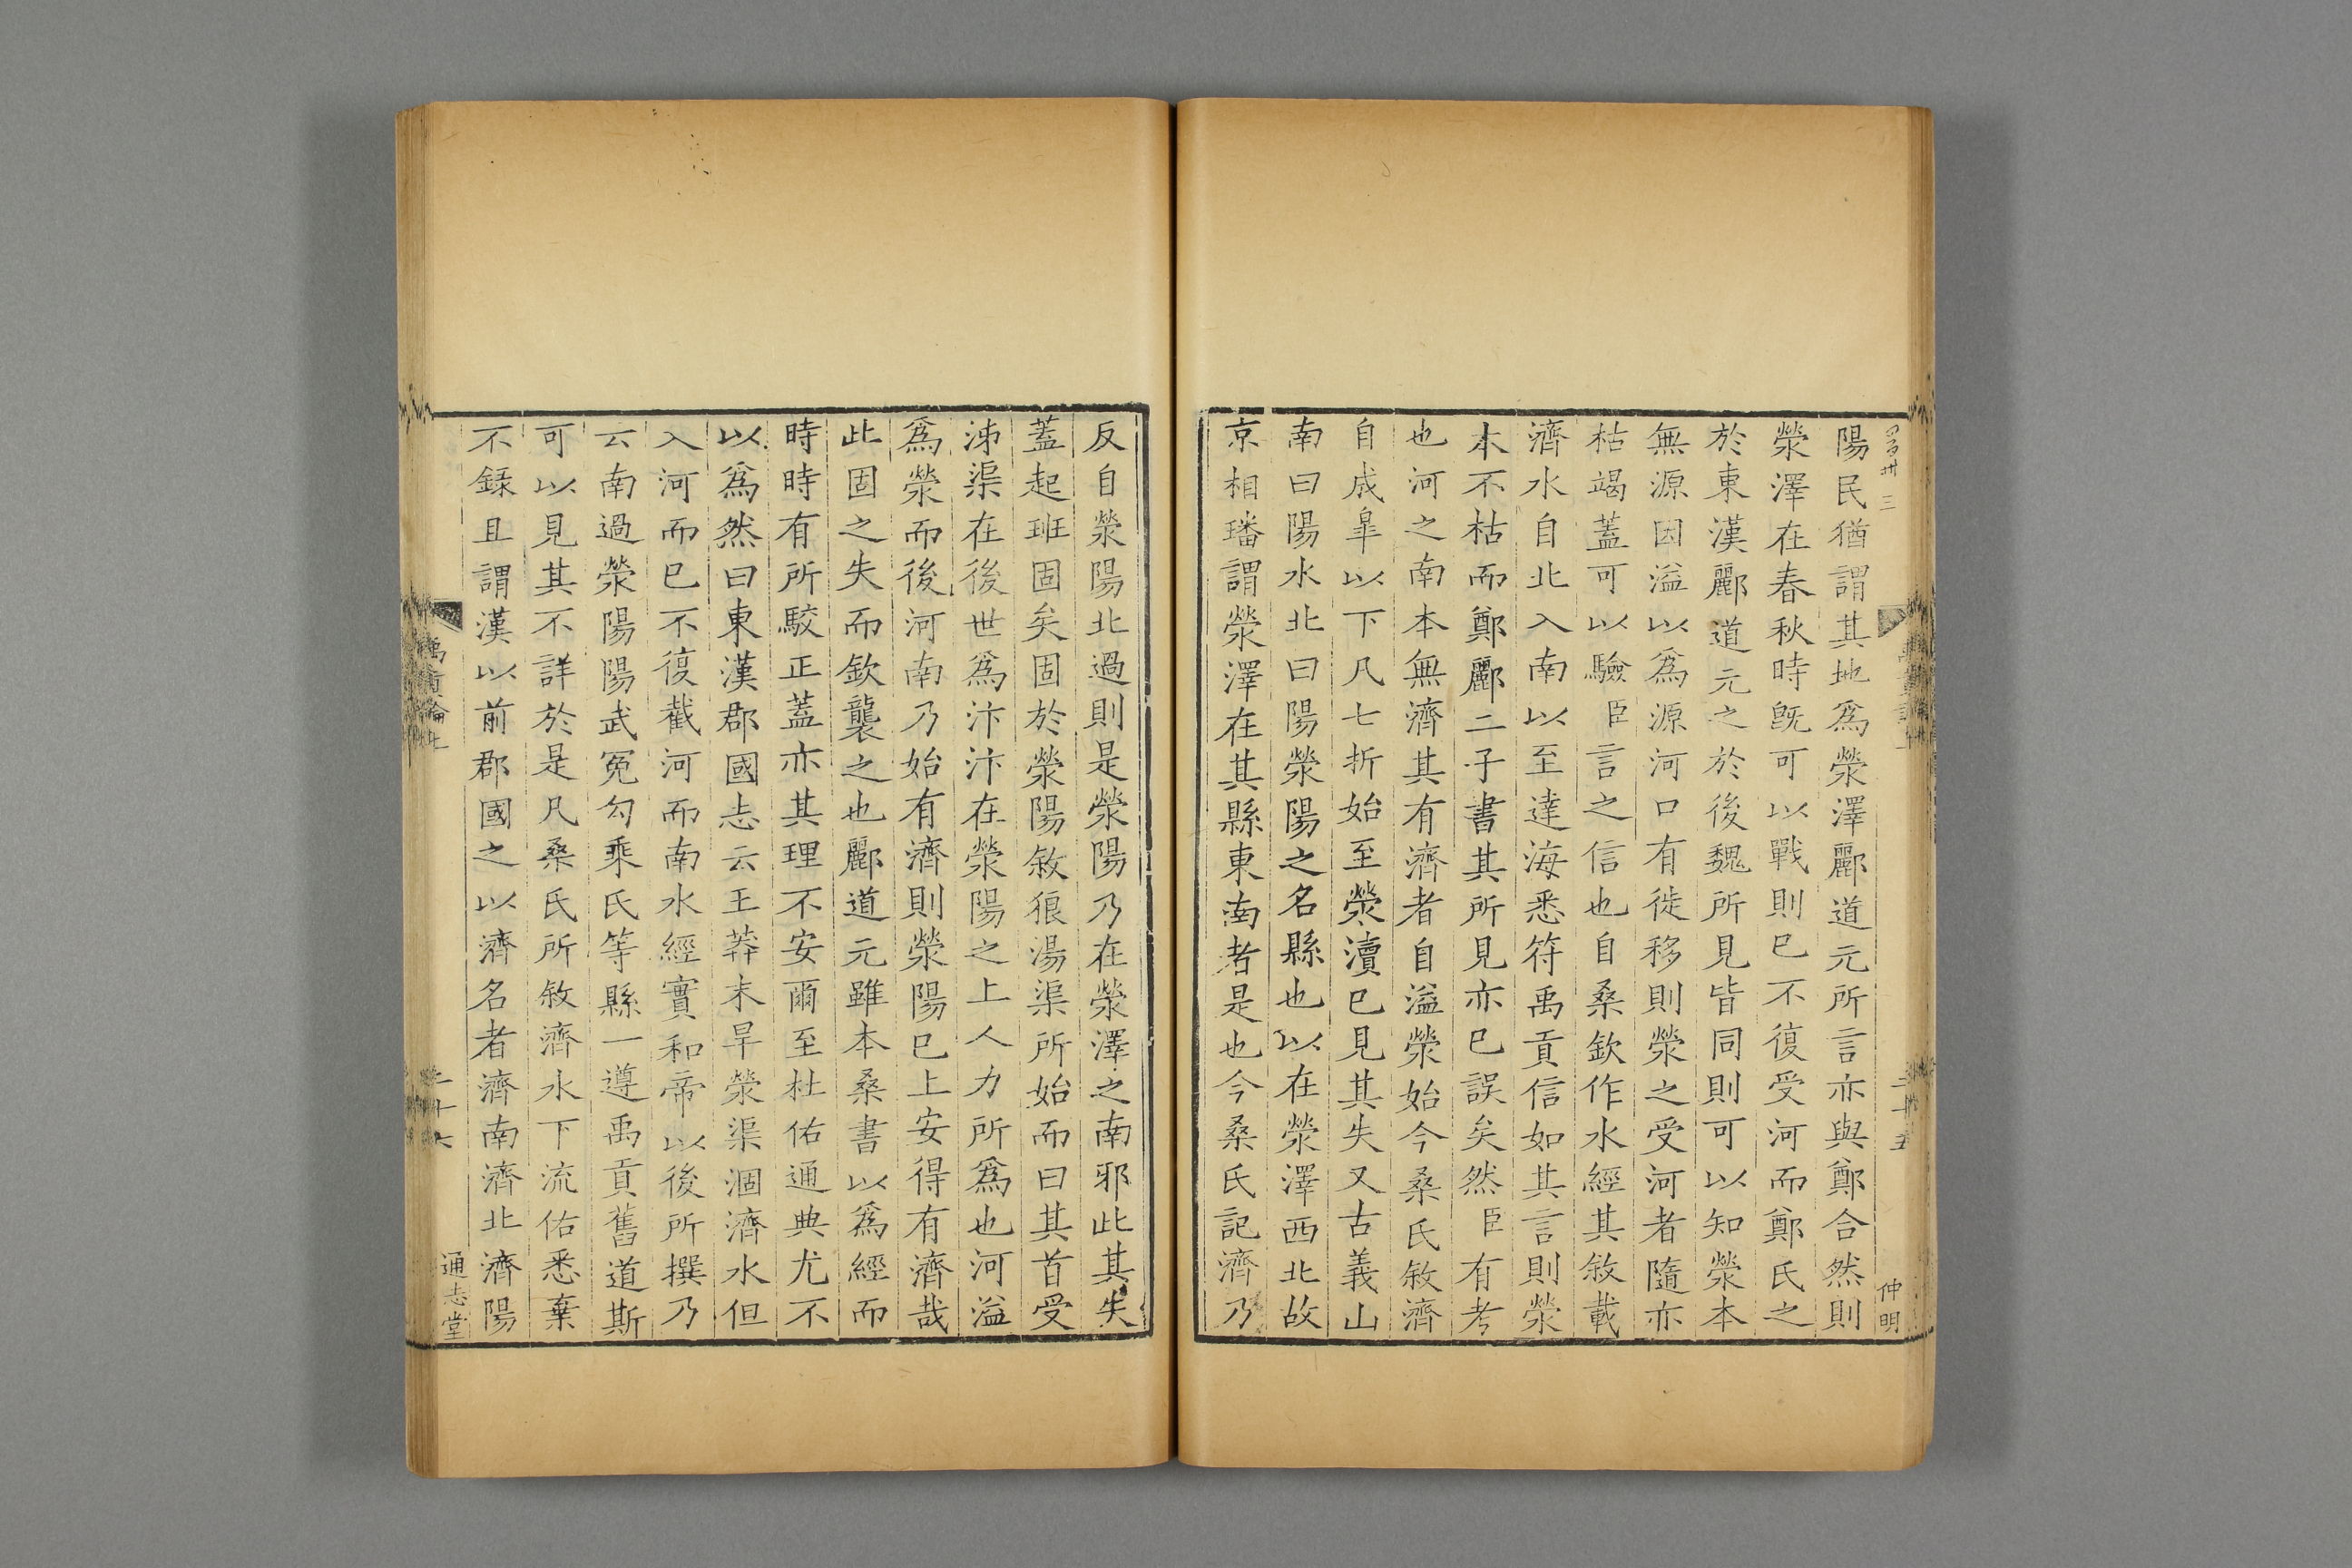 陽民猶謂其地爲滎澤酈道元所言亦與鄭合然則
滎澤在春秋時旣可以戰則巳不復受河而鄭氏之
於東漢酈道元之於後魏所見皆同則可以知滎本
無源因溢以爲源河口有徙移則滎之受河者隨亦
枯竭蓋可以驗臣言之信也自桑欽作水經其敘載
濟水自北入南以至達海悉符禹貢信如其言則滎
本不枯而鄭酈二子書其所見亦巳誤矣然臣有考
也河之南本無濟其有濟者自溢滎始今桑氏敘濟
自成皐以下凡七折始至滎瀆巳見其失又古義山
南曰陽水北曰陽滎陽之名縣也以在滎澤西北故
京相璠謂滎澤在其縣東南者是也今桑氏記濟乃
仲明
反自滎陽北過則是滎陽乃在滎澤之南邪此其失
蓋起班固矣固於滎陽敘狼湯渠所始而曰其首受
泲渠在後世爲汴汴在滎陽之上人力所爲也河溢
爲滎而後河南乃始有濟則滎陽巳上安得有濟哉
此固之失而欽襲之也酈道元雖本桑書以爲經而
時時有所駮正蓋亦其理不安爾至杜佑通典尤不
以爲然曰東漢郡國志云王莽末旱滎渠涸濟水但
入河而巳不復截河而南水經實和帝以後所撰乃
云南過滎陽陽武冤勾乘氏等縣一遵禹貢舊道斯
可以見其不詳於是凡桑氏所敘濟水下流佑悉棄
不錄且謂漢以前郡國之以濟名者濟南濟北濟陽
禹貢論上
二十六
通志堂